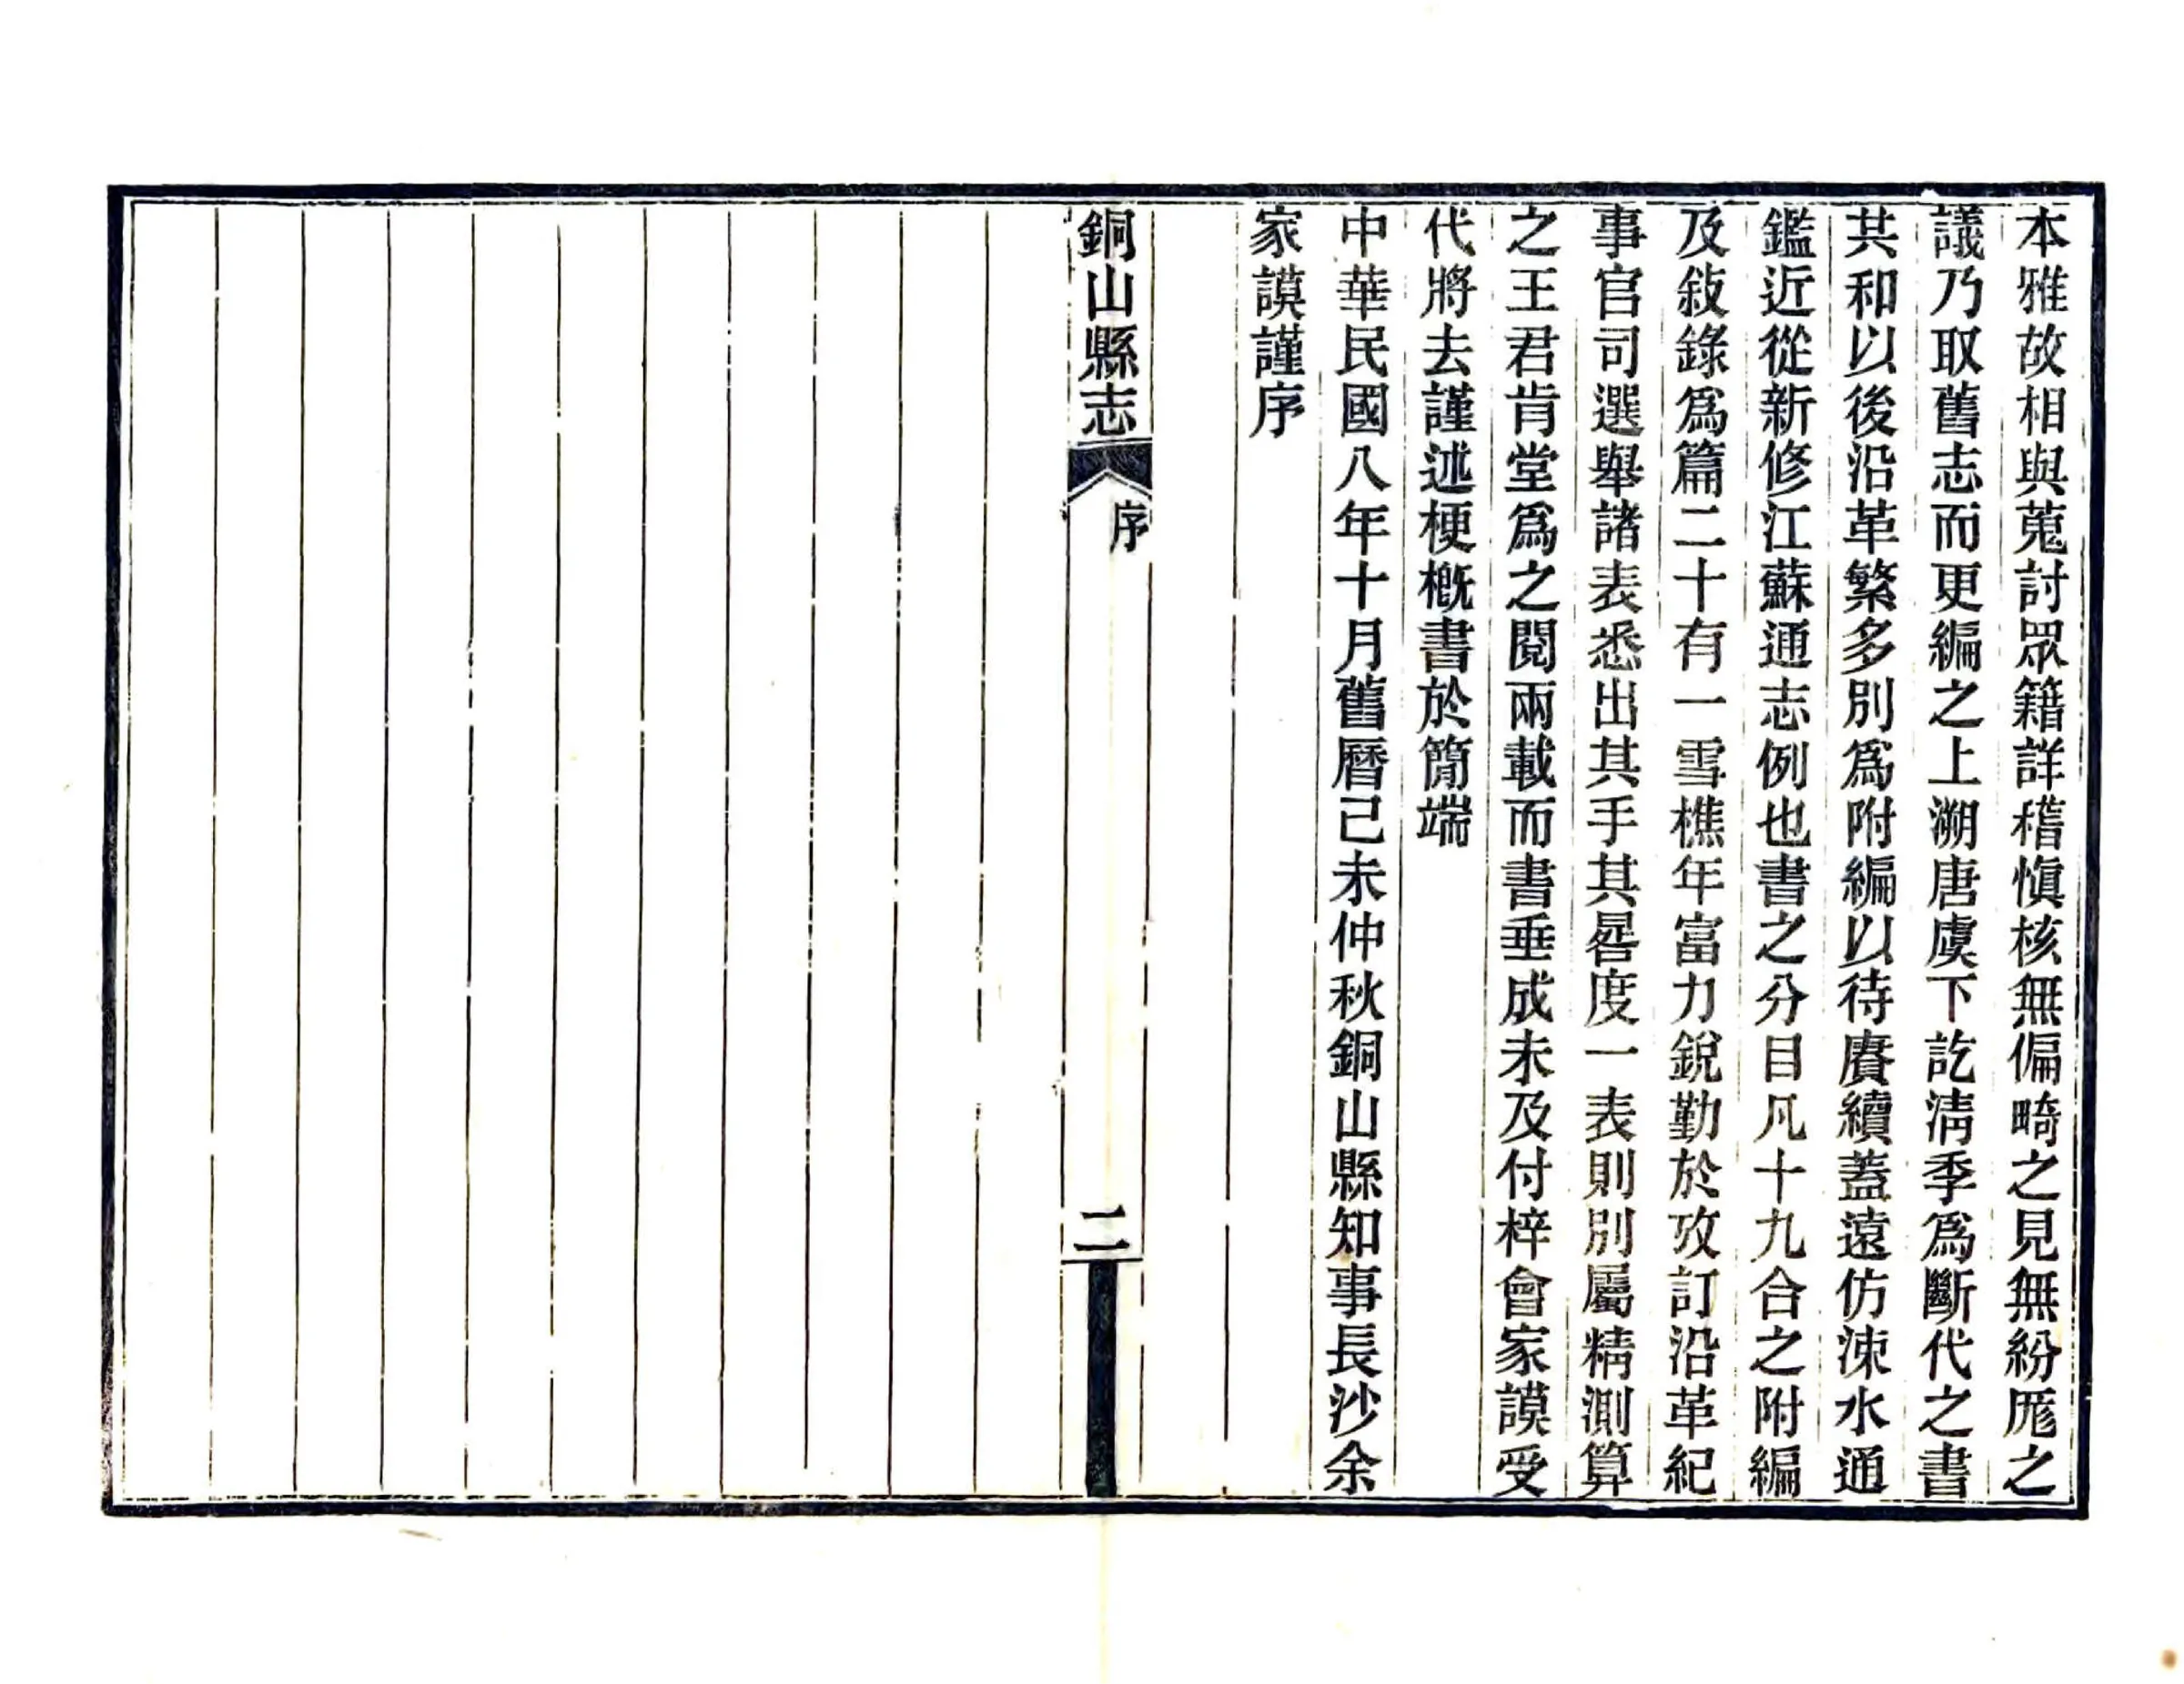 本雅故相與蒐討眾籍詳稽愼核無偏畸之見無紛厖之
議乃取舊志而更編之上溯唐虞下訖淸季爲斷代之書
共和以後沿革繁多別爲附編以待賡續蓋遠仿涑水通
鑑近從新修江蘇通志例也書之分目凡十九合之附編
及敍錄爲篇二十有一雪樵年富力銳勤於攷訂沿革紀
事官司選舉諸表悉出其手其晷度一表則別屬精測算
之王君肯堂爲之閱兩載而書垂成未及付梓會家謨受
代將去謹述梗槪書於簡端
中華民國八年十月舊曆己未仲秋銅山縣知事長沙余
家謨謹序
銅山縣志
序
二